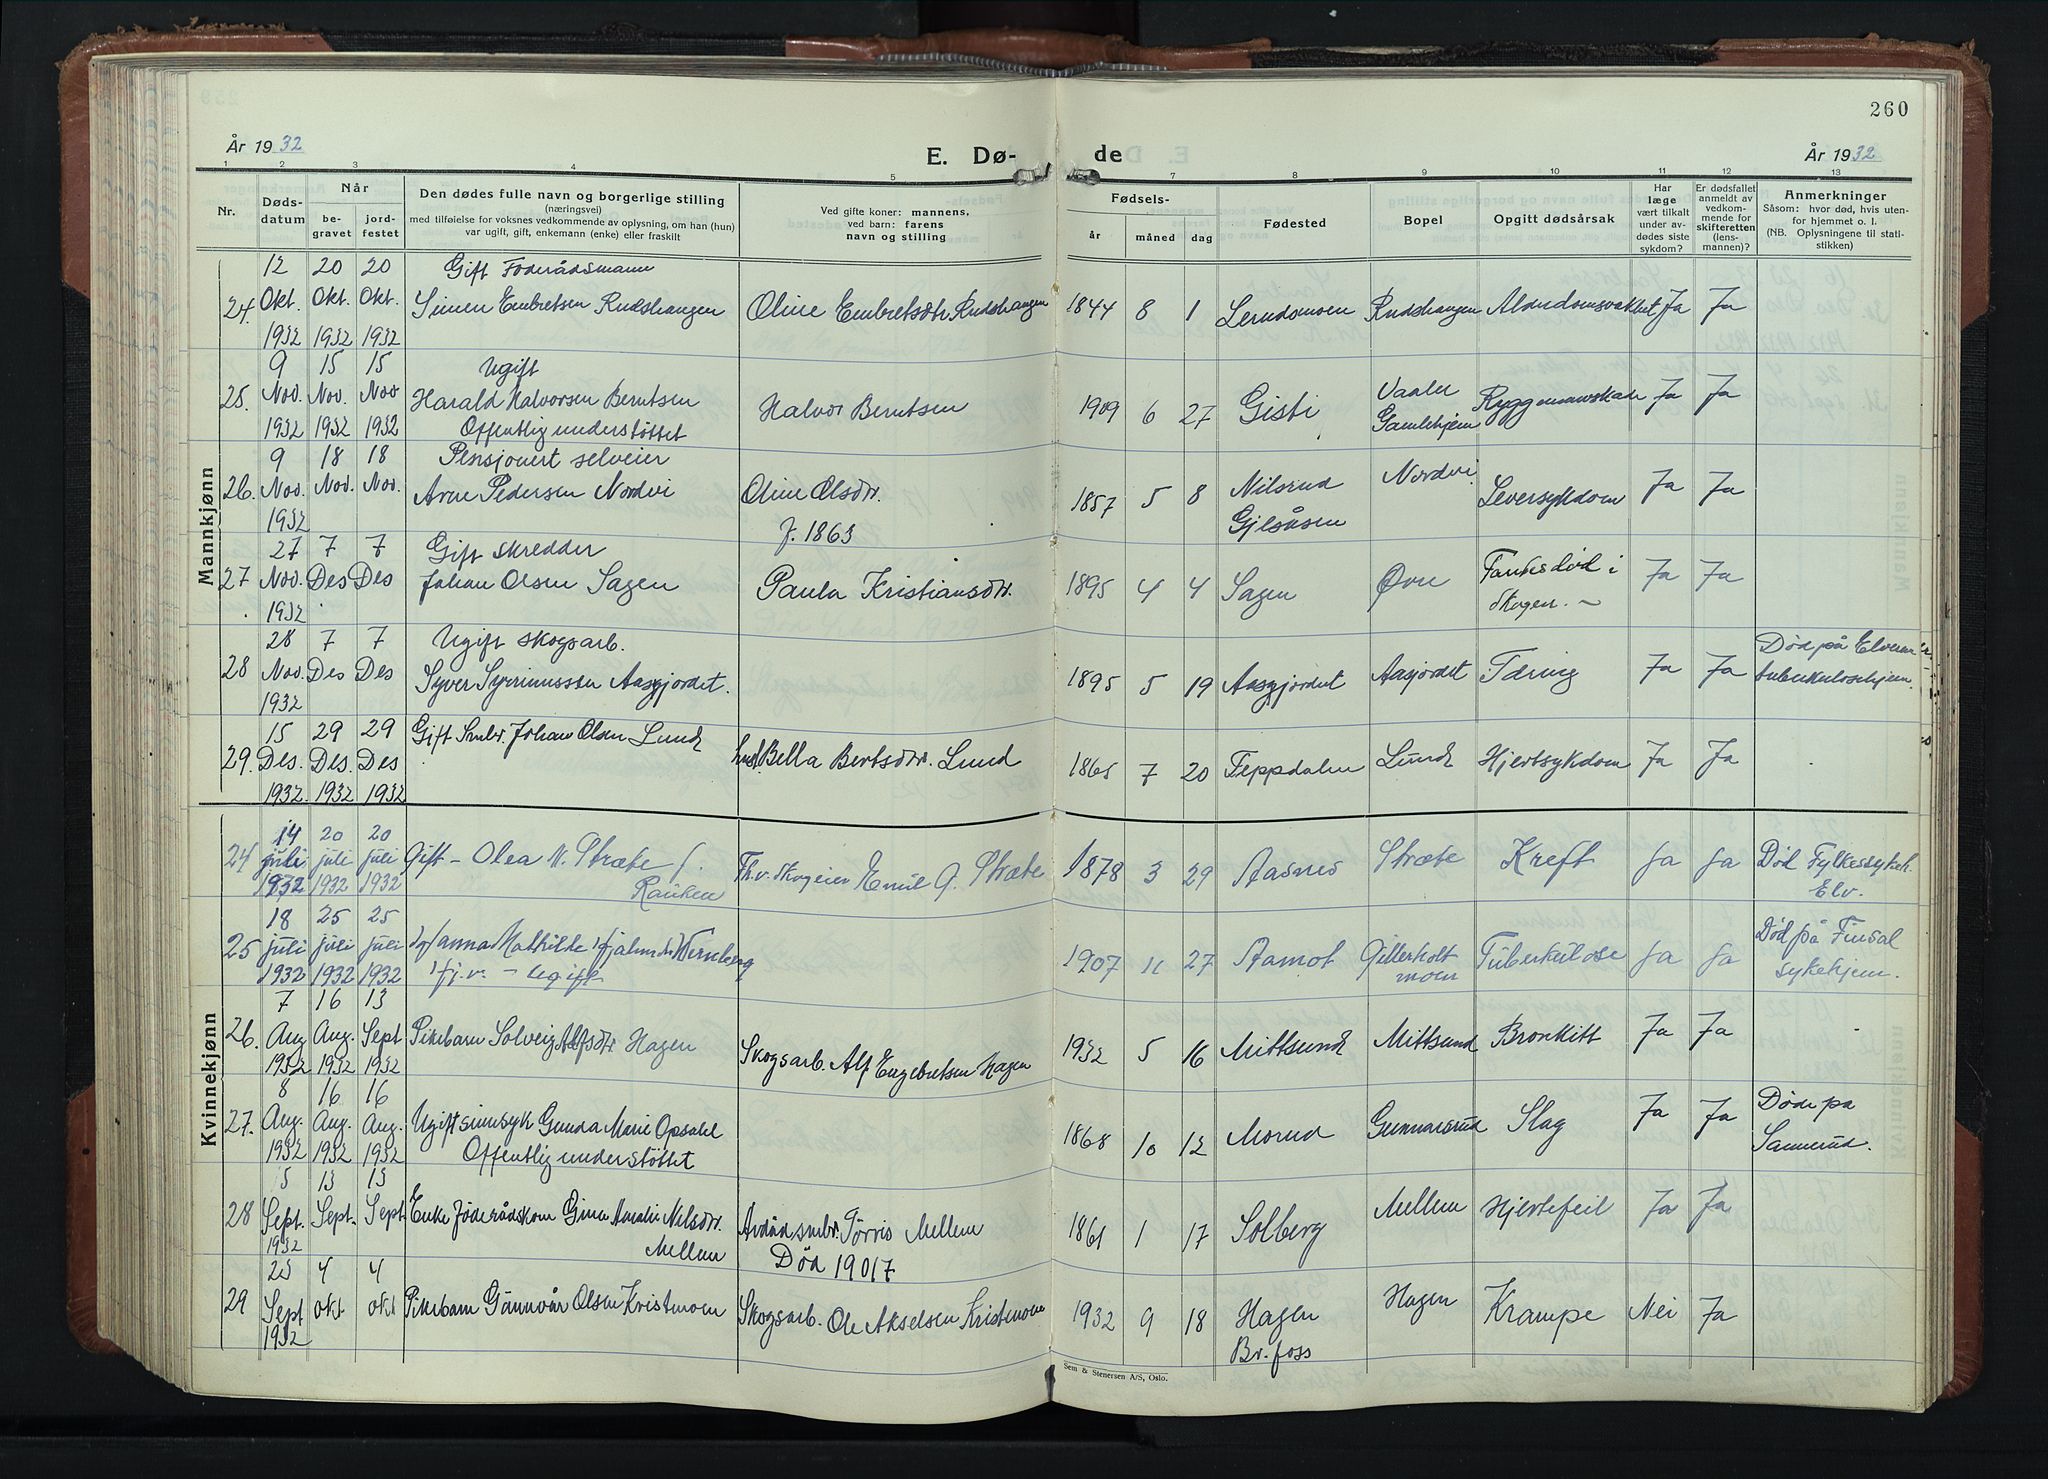 260
År 1932
E. Dø-
de
År 1932
1 2 3 4 5 7 8 9 10 11 12 13
Nr.
Døds-
datum
Når
be-
gravet
jord-
festet
Den dødes fulle navn og borgerlige stilling
(næringsvei)
med tilføielse for voksnes vedkommende av oplysning, om han (hun)
var ugift, gift, enkemann (enke) eller fraskilt
Ved gifte koner: mannens,
ved barn: farens
navn og stilling
Fødsels-
år måned dag
Fødested
Bopel
Opgitt dødsårsak
Har
læge
vært tilkalt
under av-
dødes siste
sykdom?
Er dødsfallet
anmeldt av
vedkom-
mende for
skifteretten
(lens-
mannen)?
Anmerkninger
Såsom: hvor død, hvis uten-
for hjemmet o. l.
(NB. Oplysningene til stati-
stikken)
Mannkjønn
12 20 20 Gift Føderådsmann
24. Okt. Okt. Okt. Simen Embretsen Rudshaugen Oline Embretsdtr Rudshaugen 1844 8 1 Lerudsmoen Rudshaugen Ja Ja
1932 1932 1932
9 15 15 Ugift
25. Nov. Nov. Nov Harald Halvorsen Berntsen Halvor Berntsen 1909 6 27 Gisti Vaaler Gamlehjem Ja Ja
1932 1932 1932 Offentlig understöttet
9 18 18 Pensjonert selveier
26. Nov. Nov. Nov. Arne Pedersen Nordvi Oline Olsdtr. 1857 5 8 Nilsrud Nordvi Leversykdom Ja Ja
1932 f. 1863 Gjelsåsen
27 7 7 Gift skredder
27 Nov. Des Des Johan Olsen Sagen Paula Kristiansdtr. 1895 4 4 Sagen Øvre Funnet død i Ja Ja
1932 Skogen. ~
28 7 7 Ugift skogsarb. Død på Elverum
28 Nov. Des Des Syver Syverinussen Aasgjordet. 1895 5 19 Aasgjordet Aasjordet Tæring Ja Ja tuberkulosehjem.
1932
15 29 29 Gift Smbr. Johan Olsen Lund
29. Des. Des. Des Bella Berntsdtr. Lund 1865 7 20 Teppdalen Lund Hjertsykdom Ja Ja
1932 1932 1932
Kvinnekjønn
14 20 20
24 juli juli juli Gift - Olea N. Stræte f. Th.v. Skogeier Emil G. Stræte 1878 3 29 Aasnes Stræte Kreft Ja Ja Død Fylkessykeh.
1932 1932 1932 Rauken Elv.
18 25 25 Død på Finsal
25 juli juli juli Anna Mathilde Hjalmdtr Werneberg 1907 11 27 Aamot Gillerholt Tuberkulose Ja Ja sykehjem.
1932 1932 1932 Hj.v. - Ugift moen
7 16 13
26. Aug Aug. Sept Pikebarn Solveig Alfsdtr Hagen Skogsarb. Alf Engebretsen Hagen 1932 5 16 Mittsund Mittsund Bronkitt Ja Ja
1932 1932 1932
8 16 16
27. Aug. Aug. Aug. Ugift sinnsyk Gunda Marie Opsahl 1868 10 12 Morud Gunnarsrud Slag Ja Ja Døde på
1932 1932 1932 Offentlig understöttet Sannerud.
5 13 13
28 Sept. Sept. Sept Enke føderådskone Gina Amalie Nilsdtr. Avdöd smbr. Tørris Mellem 1861 1 17 Solberg Mellem Hjertefeil Ja Ja
1932 Mellem Död 19017
25 4 4
29 Sept okt okt Pikebarn Gunnvår Olsen Kristmoen Skogsarb. Ole Akselsen Kristmoen 1932 9 18 Hagen Hagen Krampe Nei Ja
1932 Br.foss
Sem & Stenersen A/S, Oslo.